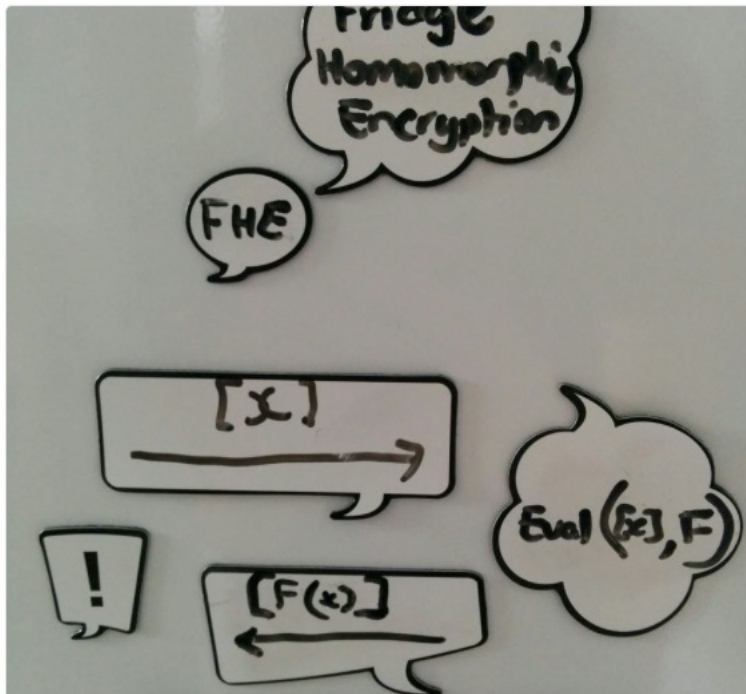 Fridge
Homomorphic
Encryption
FHE
[x]
Eval([x],F)
!
[F(x)]